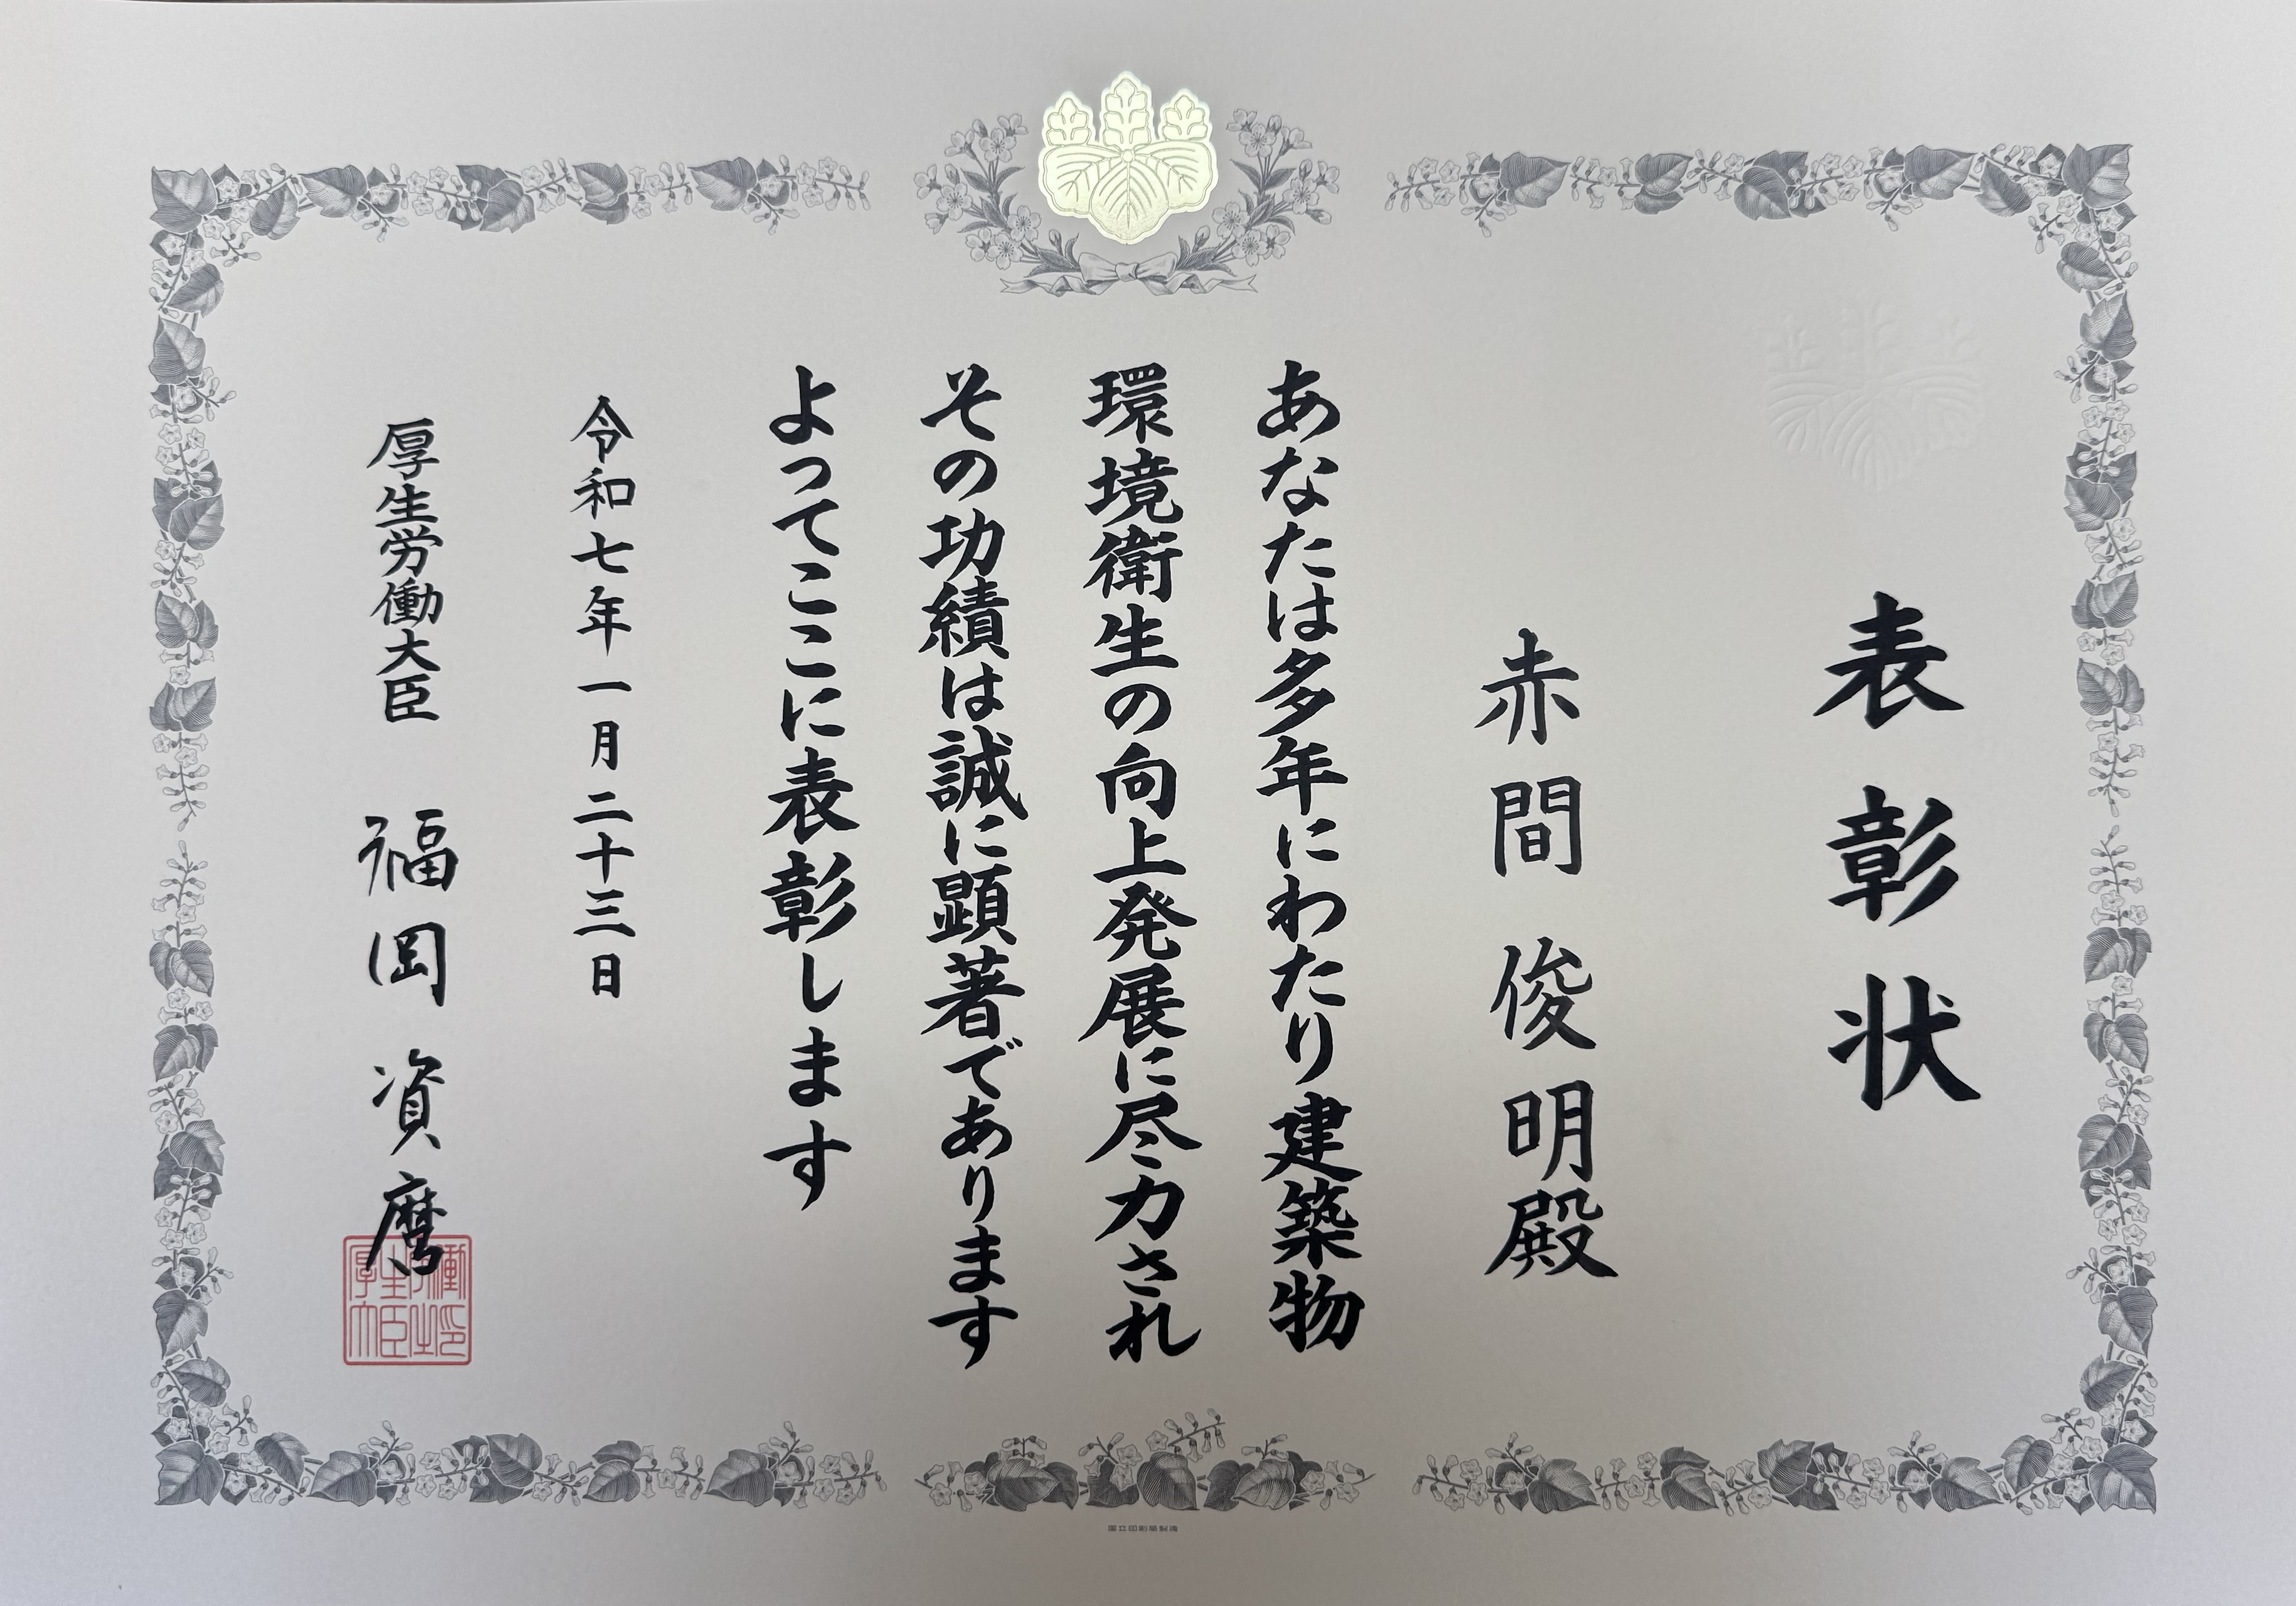 表彰状
赤間俊明殿
あなたは多年にわたり建築物
環境衛生の向上発展に尽力され
その功績は誠に顕著であります
よってここに表彰します
令和七年一月二十三日
厚生労働大臣 福岡資麿
厚生労働大臣之印
国立印刷局製造